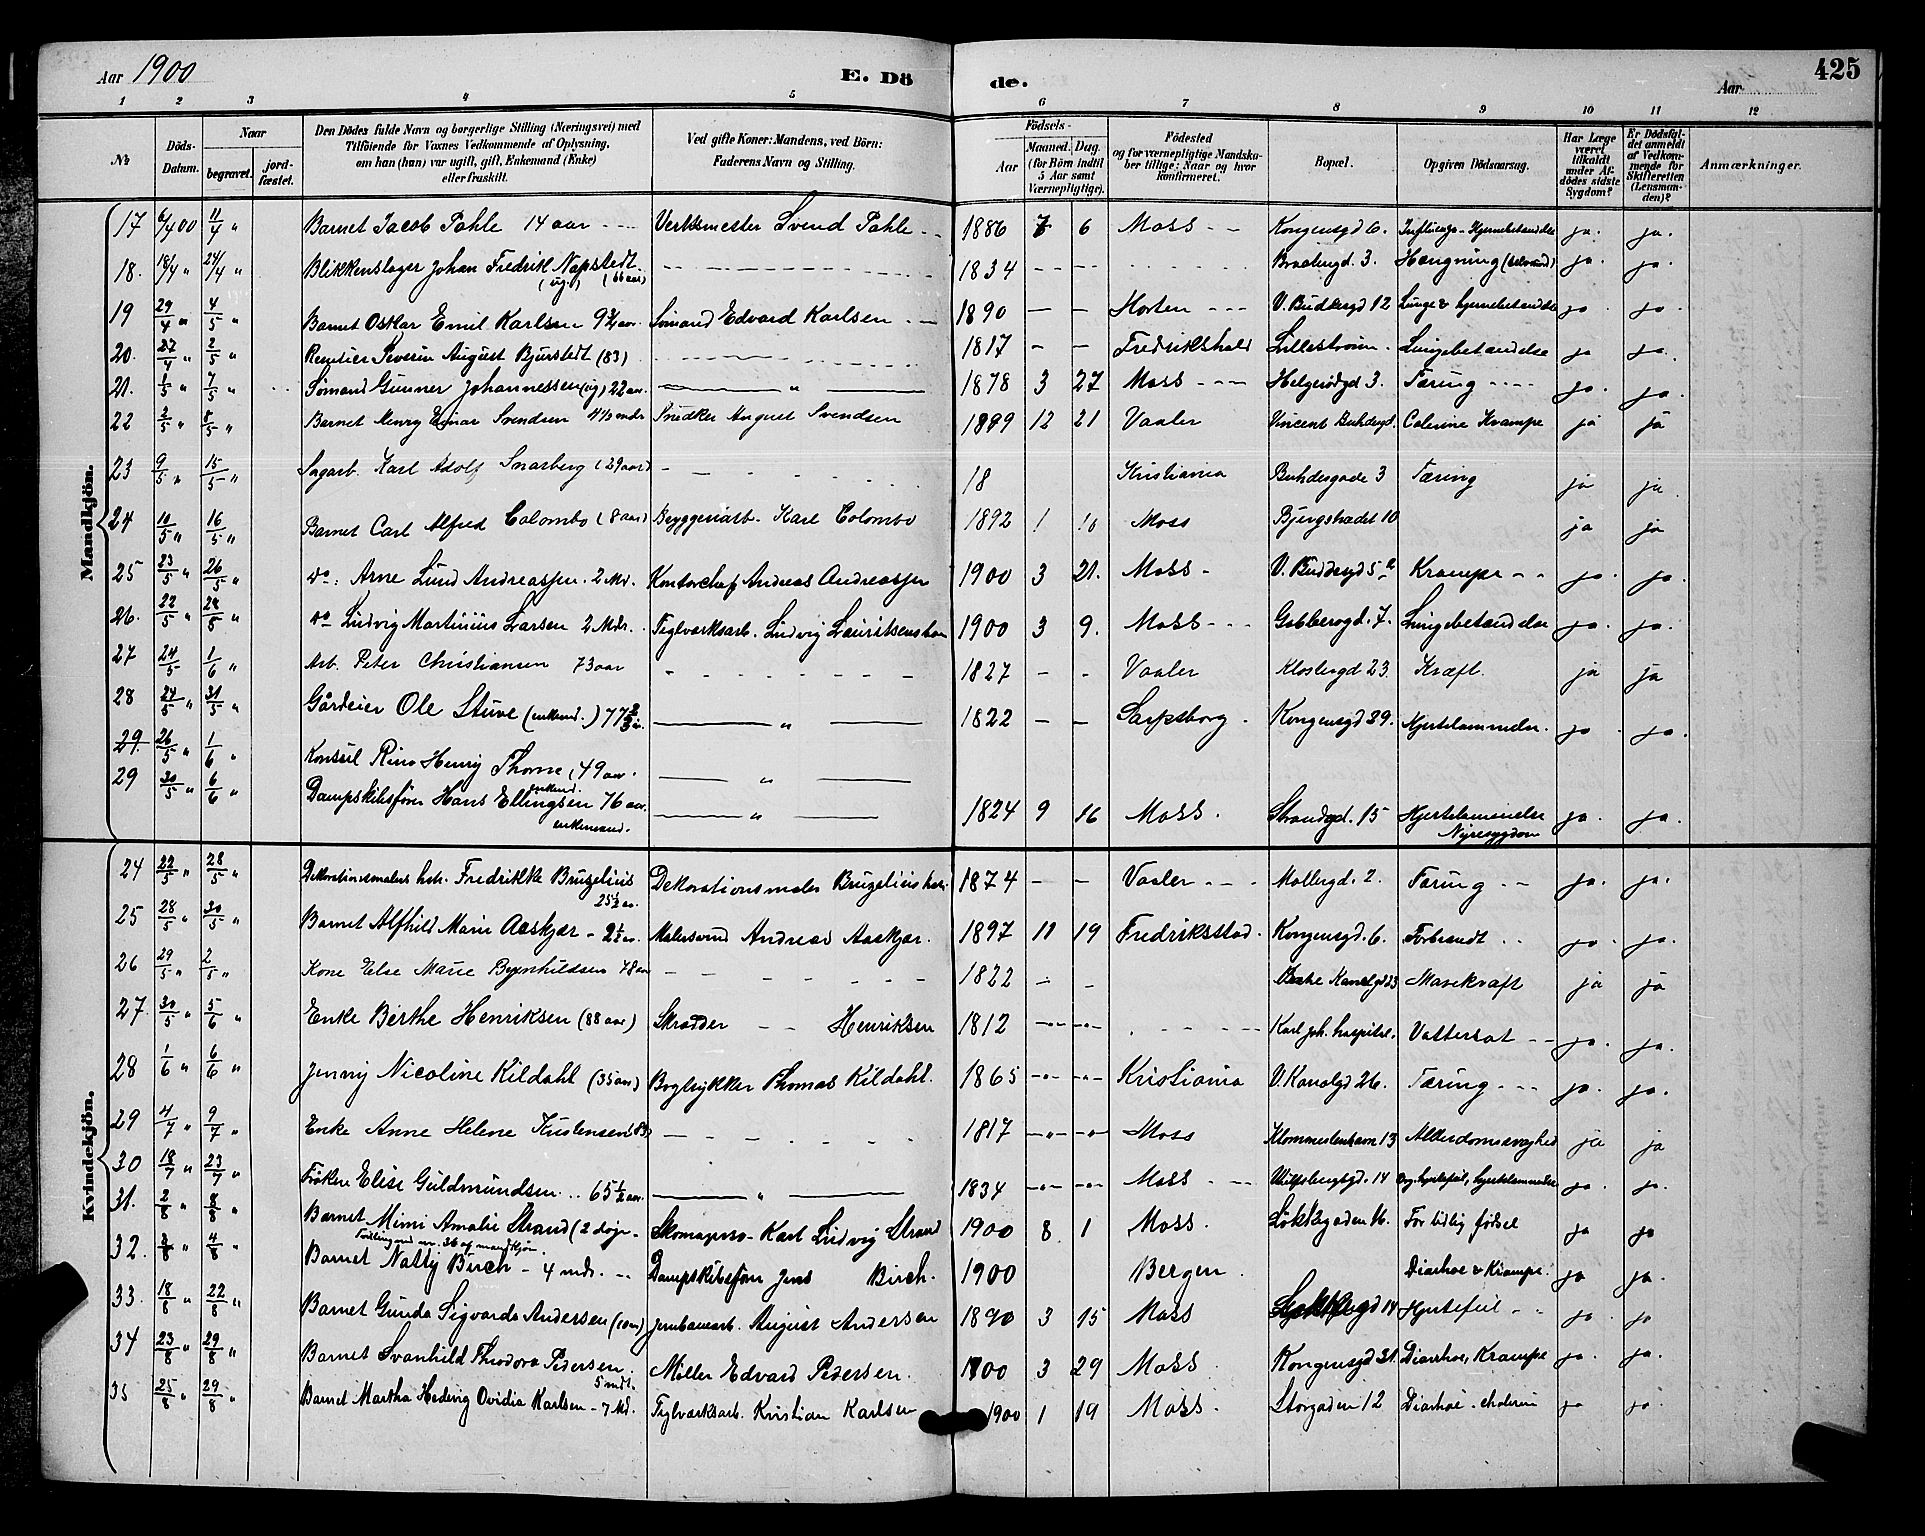 Aar 1900
E. Dö
de.
Aar
425
1 2 3 4 5 6 7 8 9 10 11 12
No
Döds-Datum.
Naar
begravet.
jordfæstet.
Den Dödes fulde Navn og borgerlige Stilling (Næringsvei) med Tilföiende for Voxnes Vedkommende af Oplysning, om han (hun) var ugift, gift, Enkemand (Enke) eller fraskilt.
Ved gifte Koner: Mandens, ved Börn: Faderens Navn og Stilling.
Födsels-
Aar
Maaned. Dag.
(for Börn indtil 5 Aar samt Værnepligtige).
Födested og for værnepligtige Mandskaber tillige: Naar og hvor konfirmeret.
Bopæl.
Opgiven Dödsaarsag.
Har Læge været tilkaldt under Afdödes sidste Sygdom?
Er Dödsfaldet anmeldt af Vedkommende for Skifteretten (Lensmanden)?
Anmærkninger.
Mandkjön.
17 6/4 00 11/4 " Barnet Jacob Pahle 14 aar Verksmester Svend Pahle 1886 7 6 Moss Kongensgd 6. ja. ja.
18. 18/4 " 24/4 " Blikkenslager Johan Fredrik Napstedt (ug.) (66 aar) 1834 3. Hængning ja. ja.
19 29/4 " 4/5 " Barnet Oskar Emil Karlsen 9 aar. Sømand Edvard Karlsen 1890 — — Horten V. Buddesgd 12 Lunge & hjernebetændelse ja. ja.
20. 27/4 " 2/5 " Rentier Severin August Bjurstedt (83) 1817 — — Fredrikshald Lillestrøm. Lungebetændelse ja ja.
21. 1/5 " 7/5 " Sømand Gunner Johannessen (ug) 22 aar. " 1878 3 27 Moss Helgerødgd 3. Tæring ja. ja.
22 2/5 " 8/5 " Barnet Henry Einar Svendsen 4½ mdr Snedker August Svendsen 1899 12 21 Vaaler Vincent Buhdesgd. Colerine Krampe ja ja
23 9/5 " 15/5 " Sagarb. Karl Adolf Snarberg (29 aar) 18 Kristiania Buhdesgade 3 Tæring ja ja
24 10/5 " 16/5 " Barnet Carl Alfred Colombo (8 aar) Bryggeriarb. Karl Colombo 1892 1 10 Moss 10 ja ja
25 23/5 " 26/5 " do: Arne Lund Andreassen. 2 Md. Kontorchef Andreas Andreassen 1900 3 21. Moss V. Buddesgd 5 a Krampe ja. ja.
26. 22/5 " 28/5 " do Ludvig Martinius Larsen 2 Mdr. Teglværksarb. Ludvig Lauritsen 1900 3 9. Moss Gabbersgd. 7. Lungebetændelse ja. ja.
27 24/5 1/6 " Arb. Peter Christiansen 73 aar 1827 — — Vaaler Klostergd 23. Kræft. ja ja
28 24/5 " 31/5 " Gårdeier Ole Stuve (enkemd.) 77 2/3 år. " 1822 — — Sarpsborg. Kongensgd 39. Hjertelammelse. ja. ja.
29. 26/5 " 1/6 " Konsul Rino Henry Thorne, 49 aar. enkemd. "
29 30/5 " 6/6 " Dampskibsfører Hans Ellingsen 76 aar. enkemand. " 1824 9 16 Moss. Strandgd. 15 Hjertelammelse Nyresygdom ja. ja.
Kvindekjön.
24 22/5 " 28/5 " Dekorationsmalers hstr. Fredrikke Bruzelius 25½ aar. Dekorationsmaler Bruzelius 1874 — — Vaaler Møllergd. 2. Tæring ja. ja.
25 28/5 " 30/5 " Barnet Alfhild Marie Aaskjær – 2½ aar. Malersvend Andreas Aaskjær. 1897 11 19 Fredriksstad. Kongensgd. 6. Forbrændt ja. ja.
26 29/5 " 2/5 " Kone Else Marie Brynhildsen 78 aar 1822 — — Kanalgd 23 Mavekræft ja ja
27. 30/5 " 5/6 " Enke Berthe Henriksen (88 aar) Skrædder Henriksen 1812 Karl Joh. hospital. Vattersot ja. ja.
28 1/6 " 6/6 " Jenny Nicoline Kildahl (35 aar) Bogtrykker Thomas Kildahl. 1865 Kristiania V. Kanalgd 26. Tæring ja. ja.
29 4/7 " 9/7 " Enke Anne Helene Kristensen (83) 1817 Moss 13 Alderdomssvaghed ja ja
30 18/7 " 23/7 " Frøken Elise Guldmundsen 65½ aar. " 1834 Moss 14 hjertelammelse ja. ja.
31. 2/8 " 8/8 " Barnet Mimi Amalie Strand (2 døgn. Tvilling med nr. 36 af mandkjøn. Skomagersv. Karl Ludvig Strand 1900 8 1 Moss. Løkkegaden 16. For tidlig fødsel ja ja
32. 3/8 " 4/8 " Barnet Natty Birch – 4 mdr. Dampskibsfører Jens Birch. 1900 Bergen. Diarhoe & Krampe. ja ja.
33. 18/8 " 22/8 " Barnet Gunda Sigvarda Andersen (10 aar) Jernbanearb. August Andersen 1890 3 15 Moss 14 Hjertefeil ja. ja
34 23/8 " 29/8 " Barnet Svanhild Theodora Pedersen. 5 mdr. Møller Edvard Pedersen. 1900 3 29 Moss. Kongensgd 31. Diarrhoe, Krampe ja. ja.
35 25/8 " 29/8 " Barnet Martha Hedevig Ovidia Karlsen – 7 Md. Teglværksarb. Kristian Karlsen 1900 1 19 Moss. Storgaden 12 Diarhoe – cholerine ja ja.